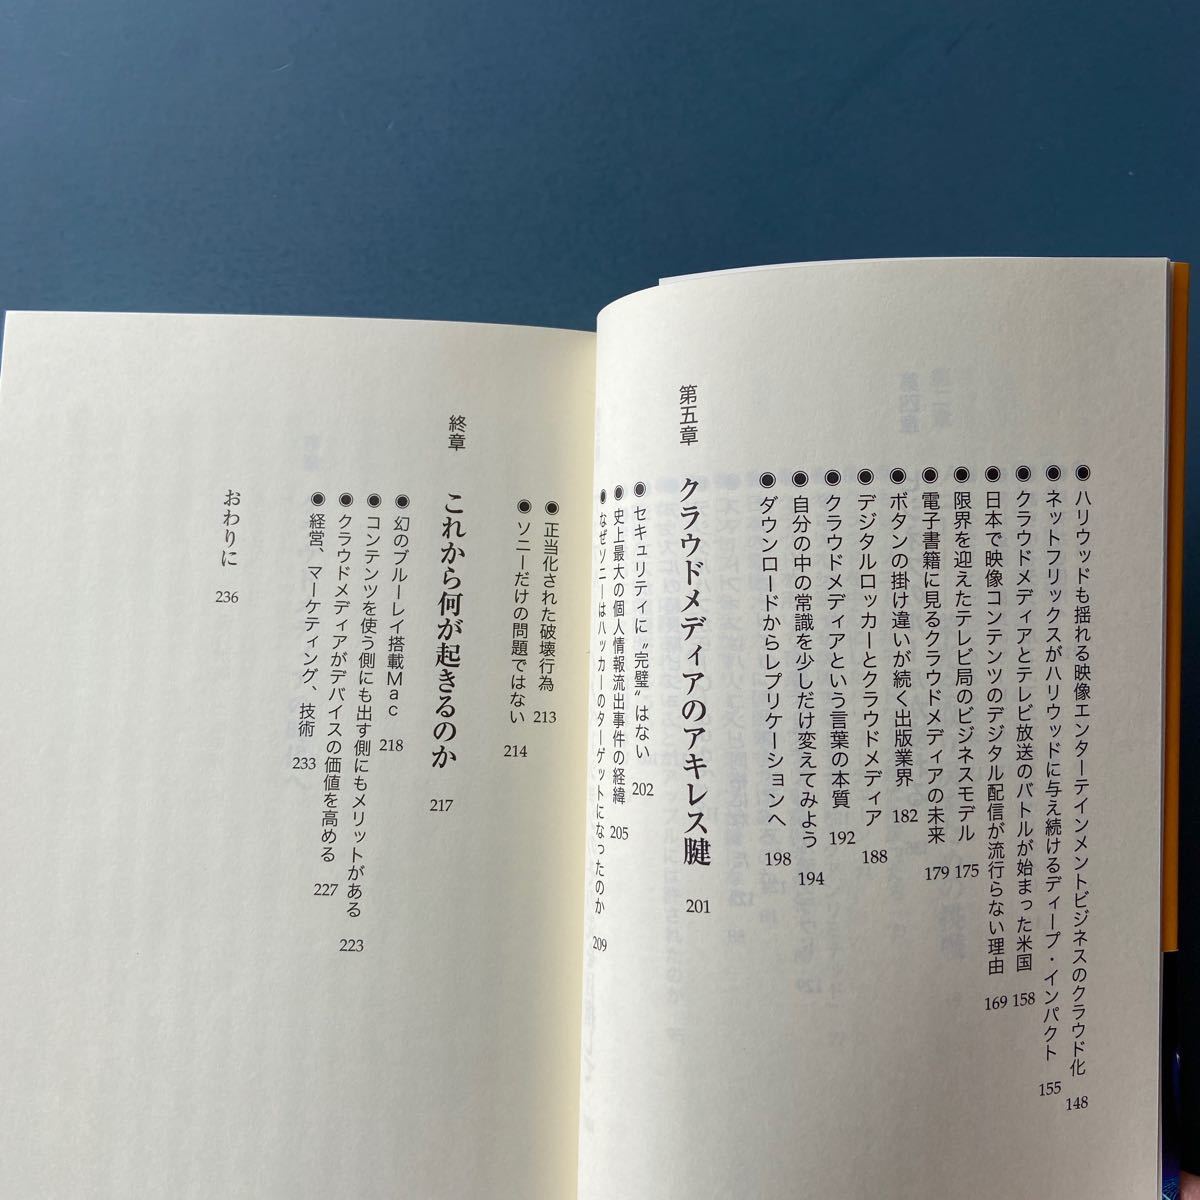 ●ハリウッドも揺れる映像エンターテインメントビジネスのクラウド化 148
●ネットフリックスがハリウッドに与え続けるディープ・インパクト 155
●クラウドメディアとテレビ放送のバトルが始まった米国 158
●日本で映像コンテンツのデジタル配信が流行らない理由 169
●限界を迎えたテレビ局のビジネスモデル 175
●電子書籍に見るクラウドメディアの未来 179
●ボタンの掛け違いが続く出版業界 182
●デジタルロッカーとクラウドメディア 188
●クラウドメディアという言葉の本質 192
●自分の中の常識を少しだけ変えてみよう 194
●ダウンロードからレプリケーションへ 198
第五章 クラウドメディアのアキレス腱 201
●セキュリティに〝完璧〟はない 202
●史上最大の個人情報流出事件の経緯 205
●なぜソニーはハッカーのターゲットになったのか 209
●正当化された破壊行為 213
●ソニーだけの問題ではない 214
終章 これから何が起きるのか 217
●幻のブルーレイ搭載Mac 218
●コンテンツを使う側にも出す側にもメリットがある 223
●クラウドメディアがデバイスの価値を高める 227
●経営、マーケティング、技術 233
おわりに 236